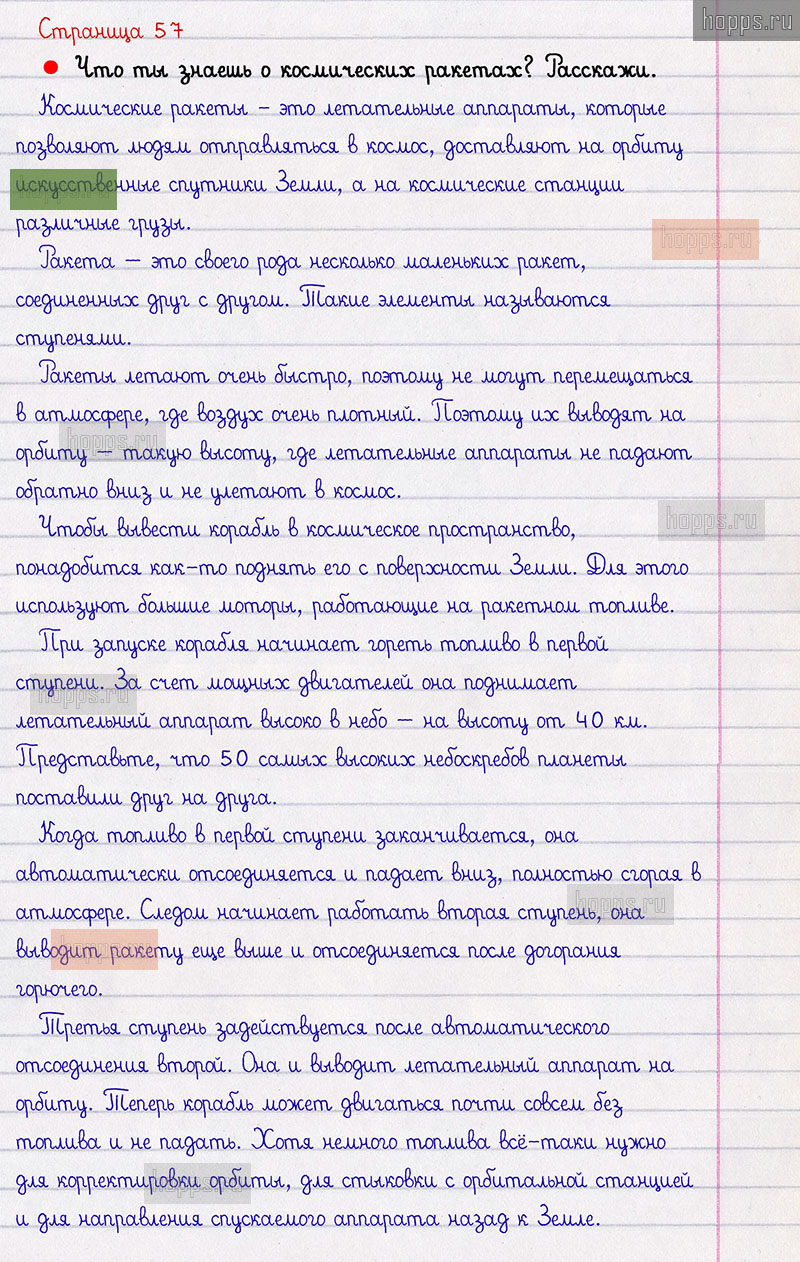 hopps.ru
Страница 57
• Что ты знаешь о космических ракетах? Расскажи.
Космические ракеты – это летательные аппараты, которые
позволяют людям отправляться в космос, доставляют на орбиту
искусственные спутники Земли, а на космические станции
различные грузы.
hopps.ru
Ракета – это своего рода несколько маленьких ракет,
соединенных друг с другом. Такие элементы называются
ступенями.
Ракеты летают очень быстро, поэтому не могут перемещаться
в атмосфере, где воздух очень плотный. Поэтому их выводят на
hopps.ru
орбиту – такую высоту, где летательные аппараты не падают
обратно вниз и не улетают в космос.
hopps.ru
Чтобы вывести корабль в космическое пространство,
понадобится как-то поднять его с поверхности Земли. Для этого
используют большие моторы, работающие на ракетном топливе.
При запуске корабля начинает гореть топливо в первой
ступени. За счет мощных двигателей она поднимает
hopps.ru
летательный аппарат высоко в небо – на высоту от 40 км.
Представьте, что 50 самых высоких небоскребов планеты
поставили друг на друга.
Когда топливо в первой ступени заканчивается, она
автоматически отсоединяется и падает вниз, полностью сгорая в
атмосфере. Следом начинает работать вторая ступень, она
hopps.ru
выводит ракету еще выше и отсоединяется после догорания
горючего.
Третья ступень задействуется после автоматического
отсоединения второй. Она и выводит летательный аппарат на
орбиту. Теперь корабль может двигаться почти совсем без
топлива и не падать. Хотя немного топлива всё-таки нужно
для корректировки орбиты, для стыковки с орбитальной станцией
hopps.ru
и для направления спускаемого аппарата назад к Земле.